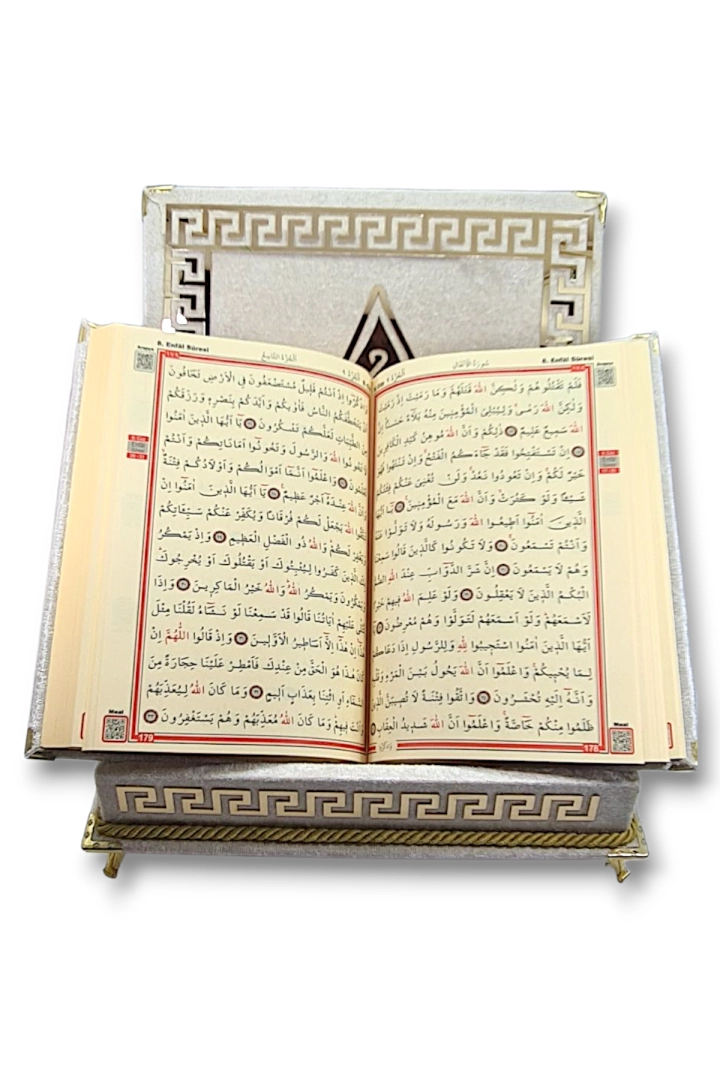 8. Enfâl Sûresi
سُورَةُ الْاَنْفَالِ
فَلَمْ تَقْتُلُوهُمْ وَلٰكِنَّ اللّٰهَ قَتَلَهُمْ وَمَا رَمَيْتَ اِذْ رَمَيْتَ
وَلٰكِنَّ اللّٰهَ رَمٰى وَلِيُبْلِيَ الْمُؤْمِنِينَ مِنْهُ بَلَٓاءً حَسَناً
اللّٰهَ سَمِيعٌ عَلِيمٌ ذٰلِكُمْ وَاَنَّ اللّٰهَ مُوهِنُ كَيْدِ الْكَافِرِينَ
اِنْ تَسْتَفْتِحُوا فَقَدْ جَٓاءَكُمُ الْفَتْحُ وَاِنْ تَنْتَهُوا فَهُوَ
خَيْرٌ لَكُمْ وَاِنْ تَعُودُوا نَعُدْ وَلَنْ تُغْنِيَ عَنْكُمْ فِئَتُكُمْ
شَيْـٔاً وَلَوْ كَثُرَتْ وَاَنَّ اللّٰهَ مَعَ الْمُؤْمِنِينَ يَٓا اَيُّهَا
الَّذِينَ اٰمَنُٓوا اَطِيعُوا اللّٰهَ وَرَسُولَهُ وَلَا تَوَلَّوْا عَنْهُ
وَاَنْتُمْ تَسْمَعُونَ وَلَا تَكُونُوا كَالَّذِينَ قَالُوا سَمِعْنَا
وَهُمْ لَا يَسْمَعُونَ اِنَّ شَرَّ الدَّوَٓابِّ عِنْدَ اللّٰهِ الصُّمُّ
الْبُكْمُ الَّذِينَ لَا يَعْقِلُونَ وَلَوْ عَلِمَ اللّٰهُ فِيهِمْ خَيْراً
لَاَسْمَعَهُمْ وَلَوْ اَسْمَعَهُمْ لَتَوَلَّوْا وَهُمْ مُعْرِضُونَ يَٓا
اَيُّهَا الَّذِينَ اٰمَنُوا اسْتَجِيبُوا لِلّٰهِ وَلِلرَّسُولِ اِذَا دَعَاكُمْ
لِمَا يُحْيِيكُمْ وَاعْلَمُٓوا اَنَّ اللّٰهَ يَحُولُ بَيْنَ الْمَرْءِ وَقَلْبِهِ
وَاَنَّهُٓ اِلَيْهِ تُحْشَرُونَ وَاتَّقُوا فِتْنَةً لَا تُصِيبَنَّ الَّذِينَ
ظَلَمُوا مِنْكُمْ خَٓاصَّةً وَاعْلَمُٓوا اَنَّ اللّٰهَ شَدِيدُ الْعِقَابِ
Meal
178
8. Enfâl Sûresi
اَلْجُزْءُ التَّاسِعُ
وَاذْكُرُٓوا اِذْ اَنْتُمْ قَلِيلٌ مُسْتَضْعَفُونَ فِي الْاَرْضِ تَخَافُونَ
يَتَخَطَّفَكُمُ النَّاسُ فَاٰوٰيكُمْ وَاَيَّدَكُمْ بِنَصْرِهِ وَرَزَقَكُمْ
الطَّيِّبَاتِ لَعَلَّكُمْ تَشْكُرُونَ يَٓا اَيُّهَا الَّذِينَ اٰمَنُوا
لَا تَخُونُوا اللّٰهَ وَالرَّسُولَ وَتَخُونُٓوا اَمَانَاتِكُمْ وَاَنْتُمْ
تَعْلَمُونَ وَاعْلَمُٓوا اَنَّمَٓا اَمْوَالُكُمْ وَاَوْلَادُكُمْ فِتْنَةٌ
وَاَنَّ اللّٰهَ عِنْدَهُٓ اَجْرٌ عَظِيمٌ يَٓا اَيُّهَا الَّذِينَ اٰمَنُٓوا اِنْ
تَتَّقُوا اللّٰهَ يَجْعَلْ لَكُمْ فُرْقَاناً وَيُكَفِّرْ عَنْكُمْ سَيِّـَٔاتِكُمْ
وَيَغْفِرْ لَكُمْ وَاللّٰهُ ذُو الْفَضْلِ الْعَظِيمِ وَاِذْ يَمْكُرُ
بِكَ الَّذِينَ كَفَرُوا لِيُثْبِتُوكَ اَوْ يَقْتُلُوكَ اَوْ يُخْرِجُوكَ
وَيَمْكُرُونَ وَيَمْكُرُ اللّٰهُ وَاللّٰهُ خَيْرُ الْمَاكِرِينَ وَاِذَا
تُتْلٰى عَلَيْهِمْ اٰيَاتُنَا قَالُوا قَدْ سَمِعْنَا لَوْ نَشَٓاءُ لَقُلْنَا مِثْلَ
هٰذَٓا اِنْ هٰذَٓا اِلَّٓا اَسَاطِيرُ الْاَوَّلِينَ وَاِذْ قَالُوا اللّٰهُمَّ اِنْ
كَانَ هٰذَا هُوَ الْحَقَّ مِنْ عِنْدِكَ فَاَمْطِرْ عَلَيْنَا حِجَارَةً مِنَ
السَّمَٓاءِ اَوِ ائْتِنَا بِعَذَابٍ اَلِيمٍ وَمَا كَانَ اللّٰهُ لِيُعَذِّبَهُمْ
وَاَنْتَ فِيهِمْ وَمَا كَانَ اللّٰهُ مُعَذِّبَهُمْ وَهُمْ يَسْتَغْفِرُونَ
Meal
179